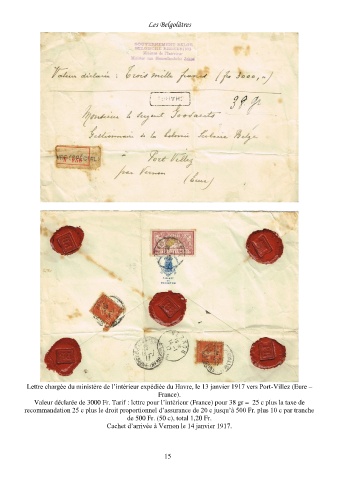 Les Belgolâtres
Valeur déclarée : Trois mille francs (frs 3000,-)
CHARGÉ
38 gr
Monsieur le sergent
Gestionnaire de la Colonie Scolaire Belge
Port Villez
par Vernon
(Eure)
Lettre chargée du ministère de l'intérieur expédiée du Havre, le 13 janvier 1917 vers Port-Villez (Eure –
France).
Valeur déclarée de 3000 Fr. Tarif : lettre pour l'intérieur (France) pour 38 gr = 25 c plus la taxe de
recommandation 25 c plus le droit proportionnel d'assurance de 20 c jusqu'à 500 Fr. plus 10 c par tranche
de 500 Fr. (50 c), total 1,20 Fr.
Cachet d'arrivée à Vernon le 14 janvier 1917.
15